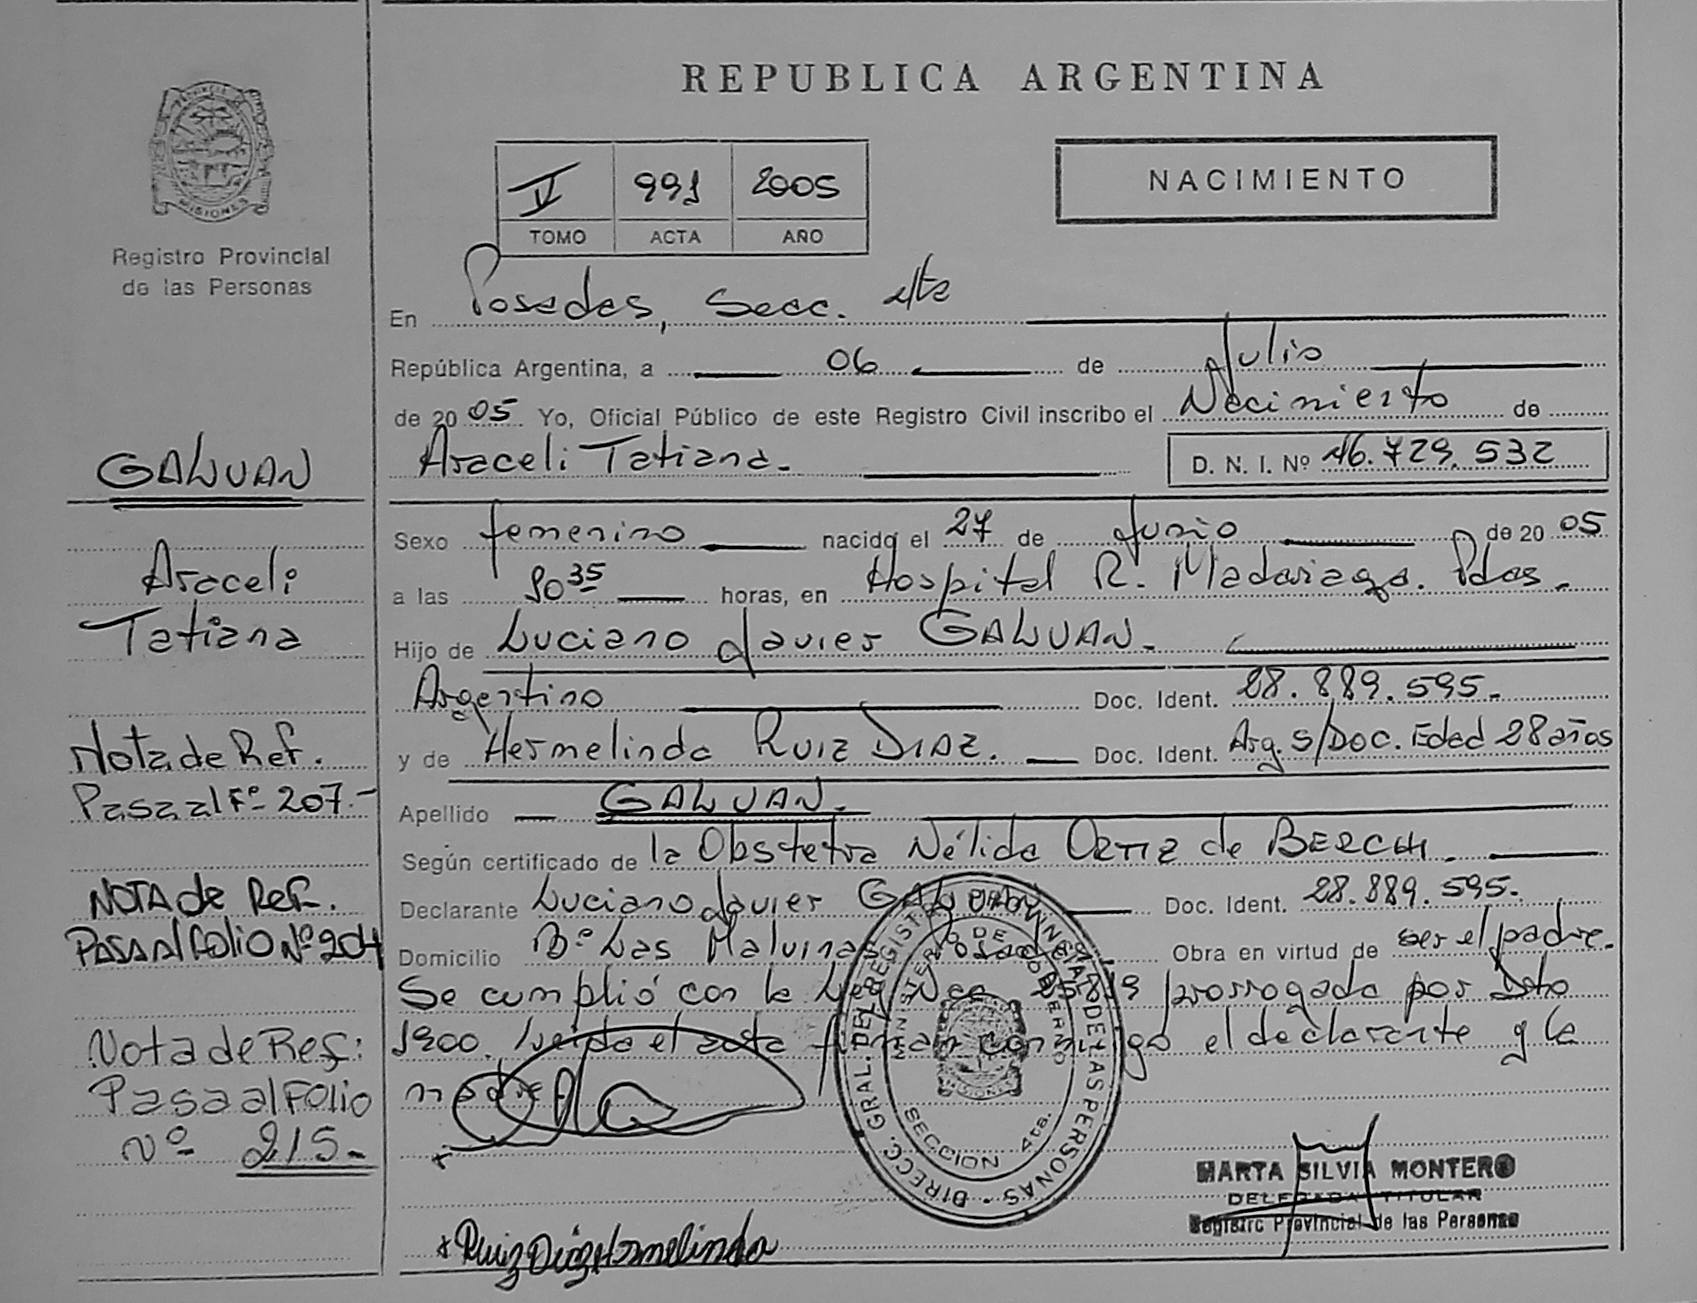 REPUBLICA ARGENTINA
PROVINCIA DE
MISIONES
Registro Provincial
de las Personas
NACIMIENTO
V 991 2005
TOMO ACTA AÑO
En Posadas, Secc. 4ta
República Argentina, a 06 de Julio
de 2005. Yo, Oficial Público de este Registro Civil inscribo el Nacimiento de
Araceli Tatiana.- D. N. I. Nº 46.729.532
Sexo femenino nacido el 27 de Junio de 2005
a las 1035 horas, en Hospital R. Madariaga. Pdas.
Hijo de Luciano Javier GALVAN.-
Argentino Doc. Ident. 28.889.595.-
y de Hermelinda RUIZ DIAZ. Doc. Ident. Arg. S/Doc. Edad 28 años
Apellido GALVAN.
Según certificado de la Obstetra Nélida ORTIZ de
Declarante Luciano Javier GALVAN Doc. Ident. 28.889.595.
Domicilio Bº Las Malvinas Posadas Obra en virtud de ser el padre.
Se cumplió con la Ley Nac. prorrogada por Dto
1900. Leída el acta firman conmigo el declarante y la
madre
GALVAN
Araceli
Tatiana
Nota de Ref.
Pasa al Fº 207.-
NOTA de Ref.
PASA Al FOLIO Nº 204
Nota de Ref:
Pasa al Folio
Nº 215.-
DIRECC. GRAL. DEL REGISTRO PROVINCIAL DE LAS PERSONAS
MINISTERIO DE GOBIERNO
MISIONES
SECCION 4ta.
MARTA SILVIA MONTERO
DELEGADA TITULAR
Registro Provincial de las Personas
* Ruiz Diaz Hermelinda